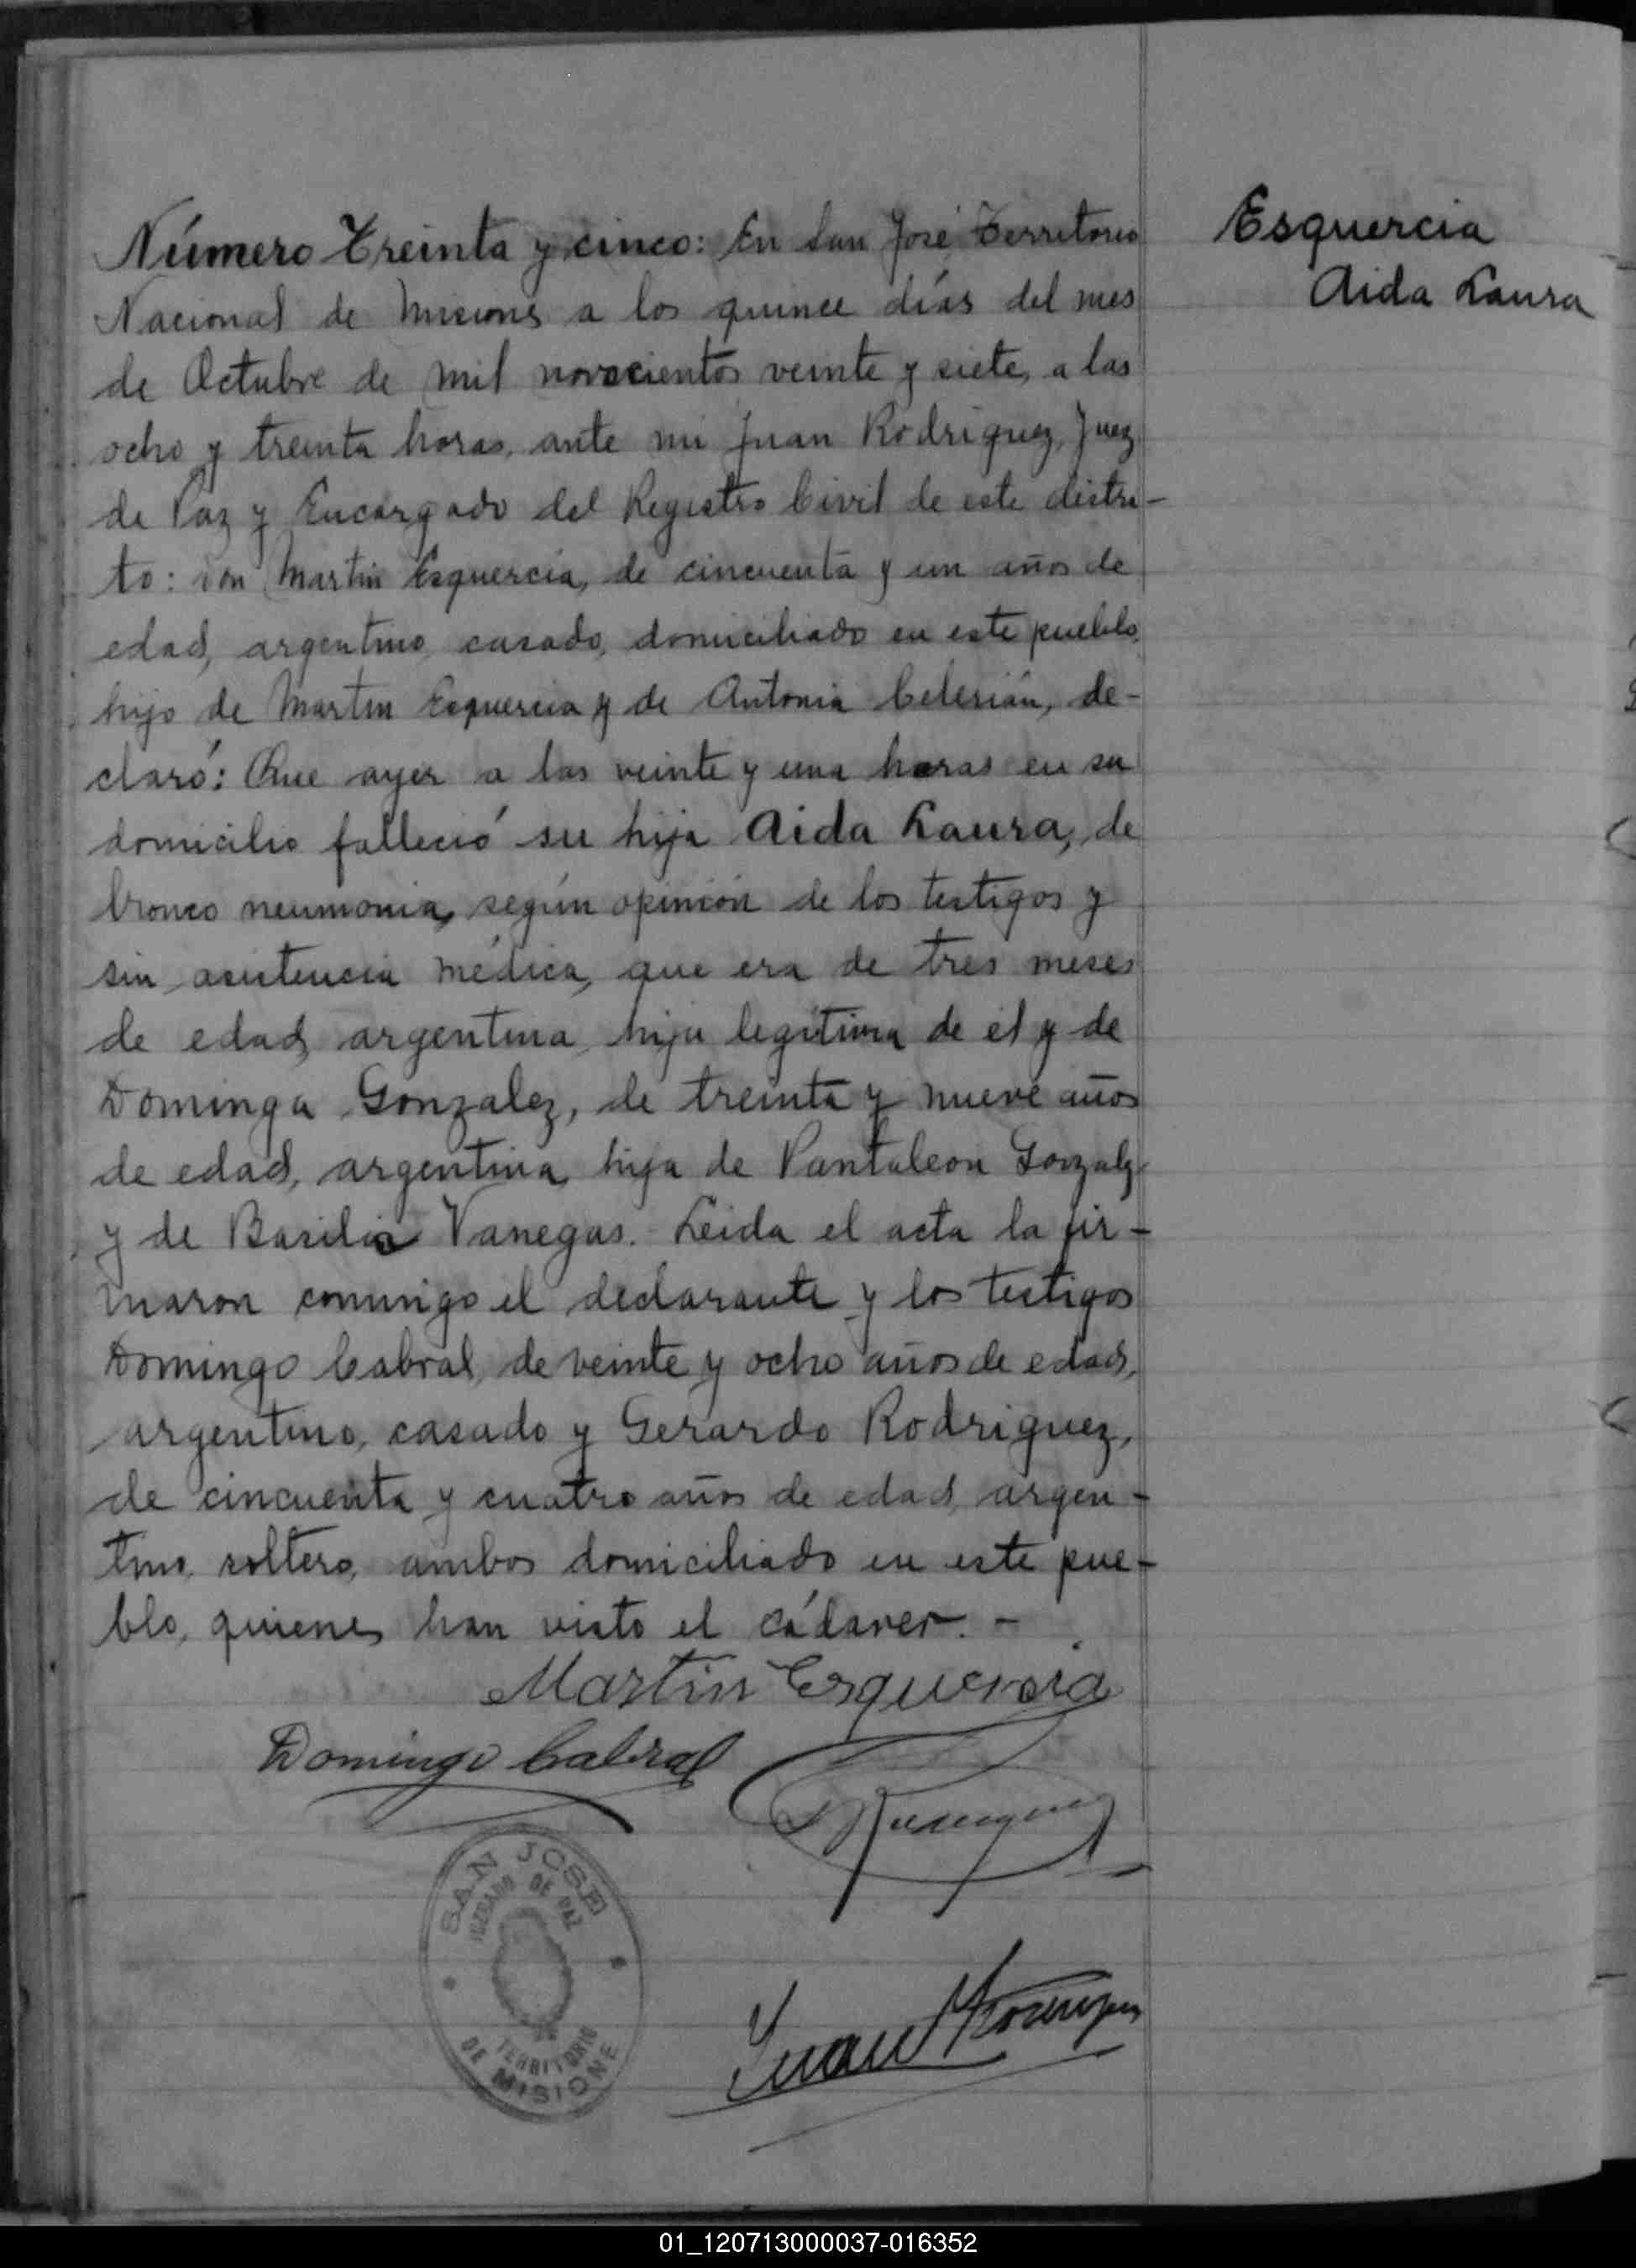 Número Treinta y cinco: En San José Territorio
Nacional de Misiones a los quince días del mes
de Octubre de mil novecientos veinte y siete, a las
ocho y treinta horas, ante mi Juan Rodriguez, Juez
de Paz y Encargado del Registro Civil de este distri-
to: don Martin Esquercia, de cincuenta y un años de
edad, argentino, casado, domiciliado en este pueblo,
hijo de Martin Esquercia y de Antonia Celesián, de-
claró: Que ayer a las veinte y una horas en su
domicilio falleció su hija Aida Laura, de
bronco neumonia, según opinión de los testigos y
sin asistencia médica, que era de tres meses
de edad, argentina, hija legitima de él y de
Dominga Gonzalez, de treinta y nueve años
de edad, argentina, hija de Pantaleon Gonzalez
y de Basilia Vanegas. Leida el acta la fir-
maron conmigo el declarante y los testigos
Domingo Cabral, de veinte y ocho años de edad,
argentino, casado y Gerardo Rodriguez,
de cincuenta y cuatro años de edad, argen-
tino, soltero, ambos domiciliado en este pue-
blo, quienes han visto el cádaver. -
Martin Esquercia
Domingo Cabral
Juan Rodriguez
SAN JOSE
JUZGADO DE PAZ
TERRITORIO
DE MISIONE
Esquercia
Aida Laura
01_120713000037-016352